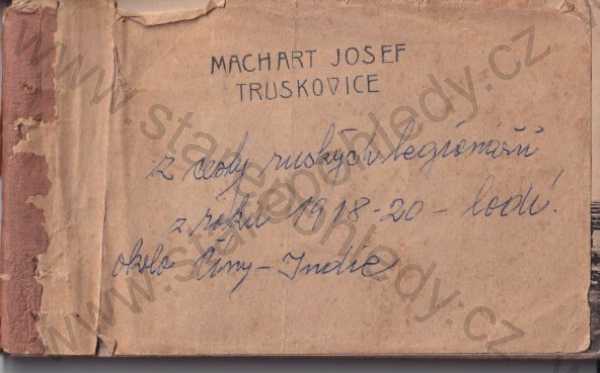 MACHART JOSEF
TRUSKOVICE
z cesty ruských legionářů
z roku 1918-20 - lodí.
okolo Číny - Indie
www.starepohledy.cz
www.starepohledy.cz